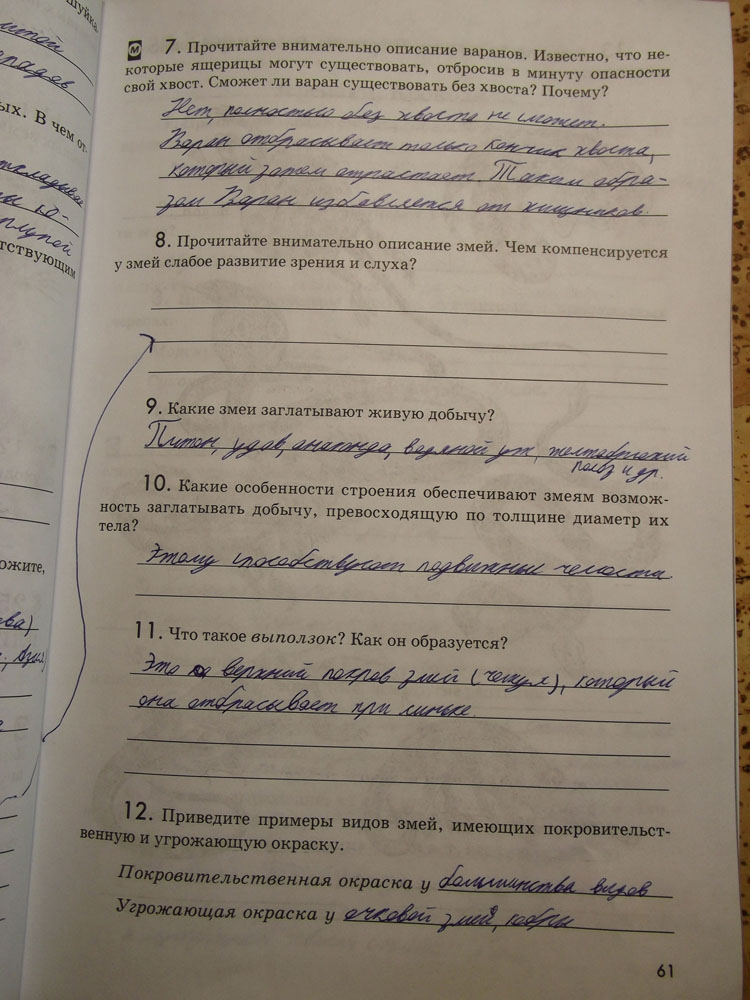 шуйка
итой
М 7. Прочитайте внимательно описание варанов. Известно, что не-
которые ящерицы могут существовать, отбросив в минуту опасности
свой хвост. Сможет ли варан существовать без хвоста? Почему?
Нет, полностью без хвоста не может.
Варан отбрасывает только кончик хвоста,
который затем отрастает. Таким обра-
зом Варан избавляется от хищников.
ых. В чем от-
откладыва
тствующим
8. Прочитайте внимательно описание змей. Чем компенсируется
у змей слабое развитие зрения и слуха?
9. Какие змеи заглатывают живую добычу?
Питон, удав, анаконда, водяной уж, желтобрюхий
полоз и др.
10. Какие особенности строения обеспечивают змеям возмож-
ность заглатывать добычу, превосходящую по толщине диаметр их
тела?
Этому способствуют подвижные челюсти.
ожите,
ва)
11. Что такое выползок? Как он образуется?
Это верхний покров змей (чешуя), который
она отбрасывает при линьке.
12. Приведите примеры видов змей, имеющих покровительст-
венную и угрожающую окраску.
Покровительственная окраска у большинства видов
Угрожающая окраска у очковой змеи, кобры
61